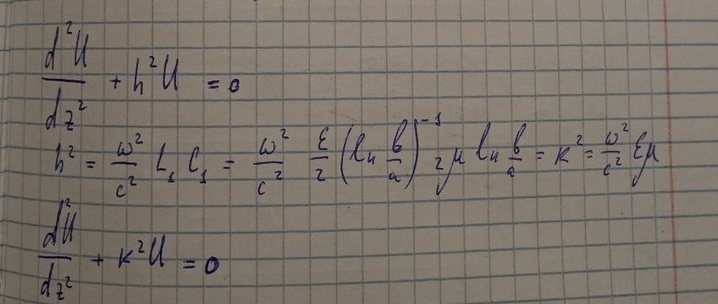 d²U/dz² + h²U = 0
h² = ω²/c² L₁ C₁ = ω²/c² ε/2 (ln b/a)⁻¹ 2μ ln b/a = k² = ω²/c² εμ
d²U/dz² + k²U = 0